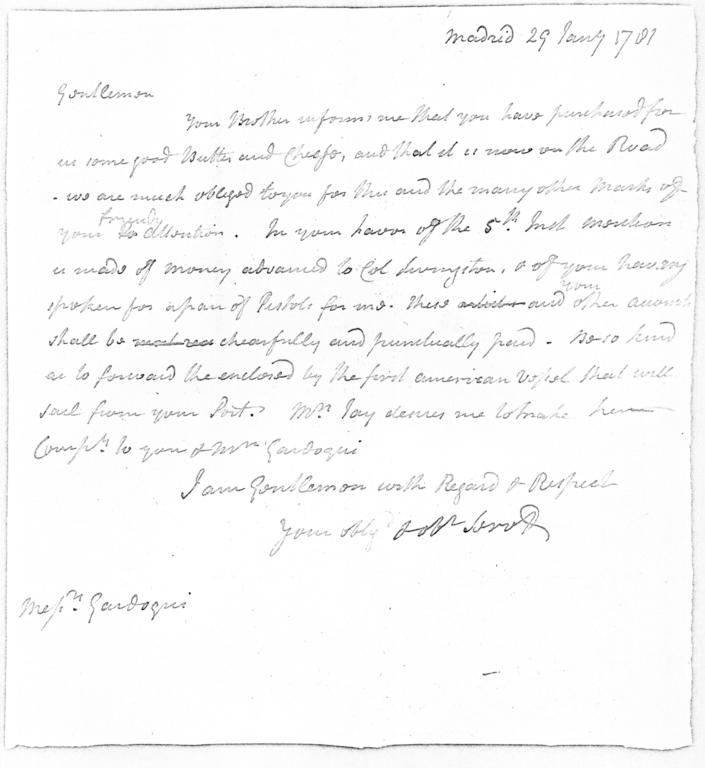 Madrid 29 Jany 1781
Gentlemen
Your Brother informs me that you have purchased for
us some good Butter and Cheese, and that it is now on the Road
- we are much obliged to you for this and the many other Marks of
friendly
your attention. In your favor of the 5th. Inst mention
is made of money advanced to Col Livingston, & of your having
your
spoken for a pair of Pistols for me. these and other accounts
shall be chearfully and punctually paid - Be so kind
as to forward the enclosed by the first american Vessel that will
sail from your Port. Mrs. Jay desires me to make her
Compts. to you & Mrs Gardoqui
I am Gentlemen with Regard & Respect
Your obligd & obt Servt
Messrs. Gardoqui